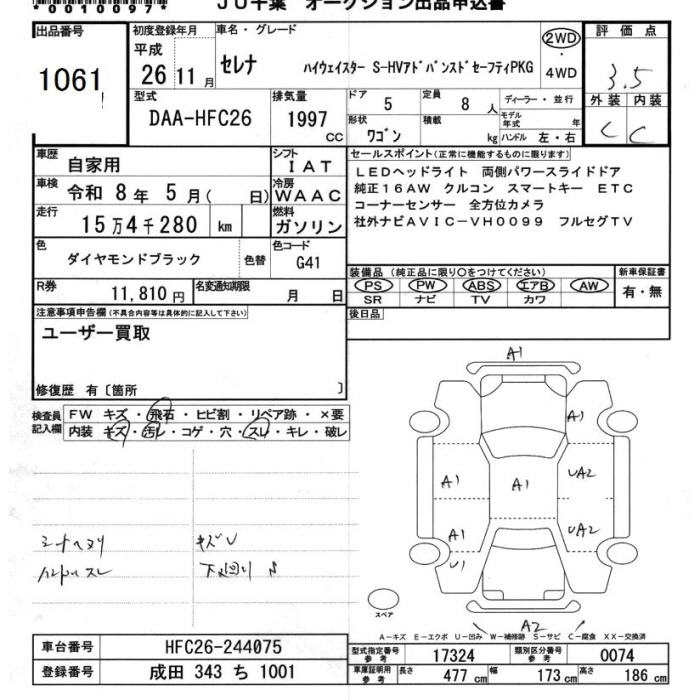 *0010097* JU千葉 オークション出品申込書
出品番号 1061
初度登録年月 平成 26年 11月
車名・グレード セレナ ハイウェイスター S-HVアドバンスドセーフティPKG
2WD ・ 4WD
評価点 3.5
外装 内装
C C
型式 DAA-HFC26
排気量 1997 CC
ドア 5 定員 8 人
形状 ワゴン 積載 kg
ディーラー・並行
モデル年式 年
ハンドル 左・右
車歴 自家用
シフト IAT
車検 令和 8年 5月( 日)
冷房 WAAC
走行 15万4千280 km
燃料 ガソリン
色 ダイヤモンドブラック 色替
色コード G41
R券 11,810円
名変通知期限 月 日
セールスポイント(正常に機能するものに限ります)
LEDヘッドライト 両側パワースライドドア
純正16AW クルコン スマートキー ETC
コーナーセンサー 全方位カメラ
社外ナビAVIC-VH0099 フルセグTV
装備品(純正品に限り○をつけてください)
PS PW ABS エアB AW
SR ナビ TV カワ
新車保証書 有・無
後日品
注意事項申告欄(不具合内容等は具体的に記入して下さい)
ユーザー買取
修復歴 有〔箇所 〕
検査員記入欄
FW キズ・飛石・ヒビ割・リペア跡・×要
内装 キズ・汚レ・コゲ・穴・スレ・キレ・破レ
シートヘタリ キズU
ハンドルスレ 下廻りS
A1
A1
A1 A1 UA2
A1 UA2
U1
A2
スペア
A-キズ E-エクボ U-凹み W-補修跡 S-サビ C-腐食 XX-交換済
車台番号 HFC26-244075
登録番号 成田 343 ち 1001
型式指定番号 参考 17324 類別区分番号 参考 0074
車庫証明用 参考 長さ 477 cm 幅 173 cm 高さ 186 cm